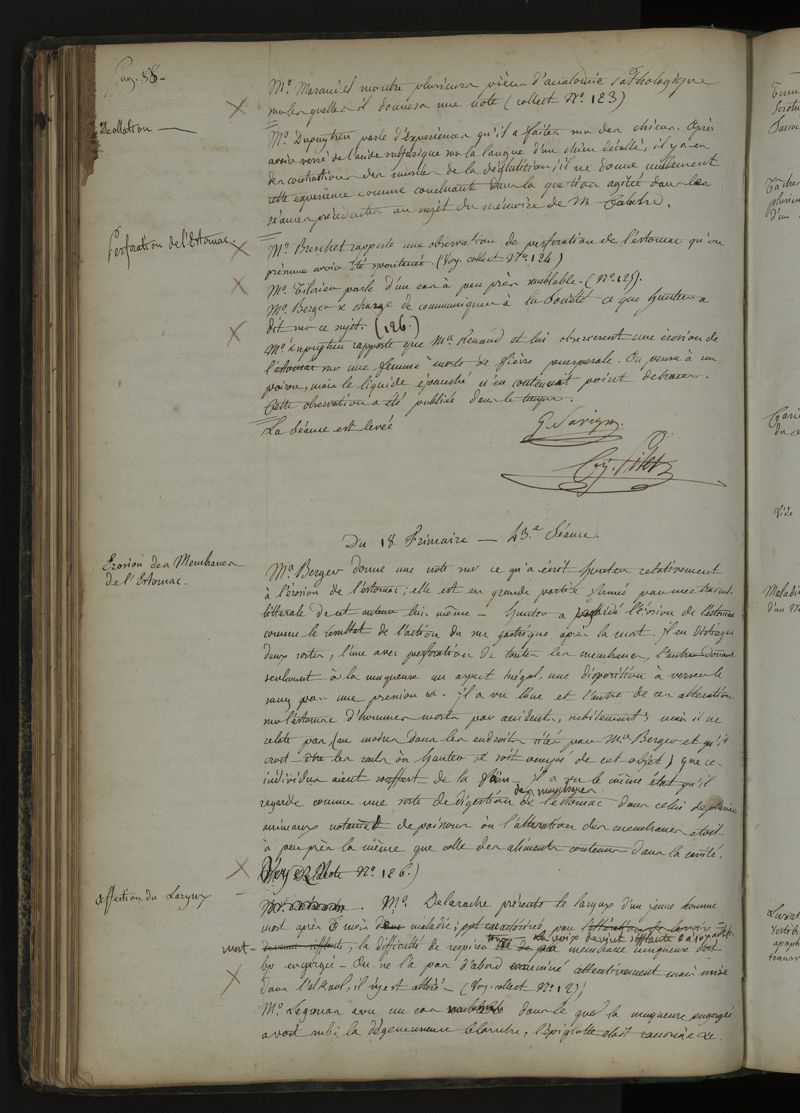 Pag. 88.
Mr. Marandel montre plusieurs pièces d'anatomie pathologique
sur lesquelles il donnera une note (collect No. 123)
Decollation
Mr. Dupuytren parle d'Experiences qu'il a faites sur des chiens. Après
avoir versé de l'acide sulfurique sur la langue d'un chien decollé, il y a eu
des contractions des muscles de la déglutition; il ne donne nullement
cette experience comme concluant dans la question agitée dans les
séances précédentes au sujet du mémoire de Mr
Perforation de l'Estomac.
Mr. Breschet rapporte une observation de perforation de l'estomac qu'on
présume avoir été spontanée (Voy. collect No. 124)
Mr. parle d'un cas à peu près semblable. (No. 125).
Mr. Berger se charge de communiquer à la Société ce que hunter a
dit sur ce sujet. (126.)
Mr. Dupuytren rapporte que Mr. Renaud et lui observerent une érosion de
l'estomac sur une femme morte de fièvre puerperale. On pensa à un
poison, mais le liquide épanché n'en contenait point de traces.
Cette observation a été publiée dans le temps.
La Séance est levée
G. Savigny
Du 18. Frimaire — 43.e Séance
Erosion des Membranes
de l'Estomac.
Mr. Berger donne une note sur ce qu'a écrit hunter relativement
à l'érosion de l'estomac; elle est en grande partie formée par une traduct.
littérale de cet auteur lui-même — hunter a regardé l'érosion de l'estomac
comme le résultat de l'action du suc gastrique après la mort. Il en distingue
deux sortes, l'une avec perforation de toutes les membranes, l'autre donnant
seulement à la muqueuse un aspect inégal, une disposition à verser le
sang par une pression &a. Il a vu l'une et l'autre de ces altérations
sur l'estomac d'hommes morts par accidents, subitement; mais il ne
relate pas (au moins dans les endroits cités par Mr. Berger et qu'il
croit être les seuls où hunter se soit occupé de cet objet) que ces
individus aient souffert de la faim — il a vu le même état qu'il
regarde comme une sorte de digestion des membranes de l'estomac dans celui de plusieurs
animaux notamt de poissons où l'altération des membranes etait
à peu près la même que celle des aliments contenus dans la cavité.
(Voy. la Note No. 126.)
Affection du Larynx
Mr. Delaroche présente le larynx d'un jeune homme
mort après 8 mois de maladie; par
mort — la difficulté de respirer la voix devint sifflante membrane muqueuse était
engorgée — On ne l'a pas d'abord examiné attentivement mais mise
dans l'alkool, il s'y est altéré — (Voy. collect No. 12);
Mr. Legouas a vu un cas dans le quel la muqueuse engorgée
avait subi la dégénérescence blanche, l'épiglotte etait &c.